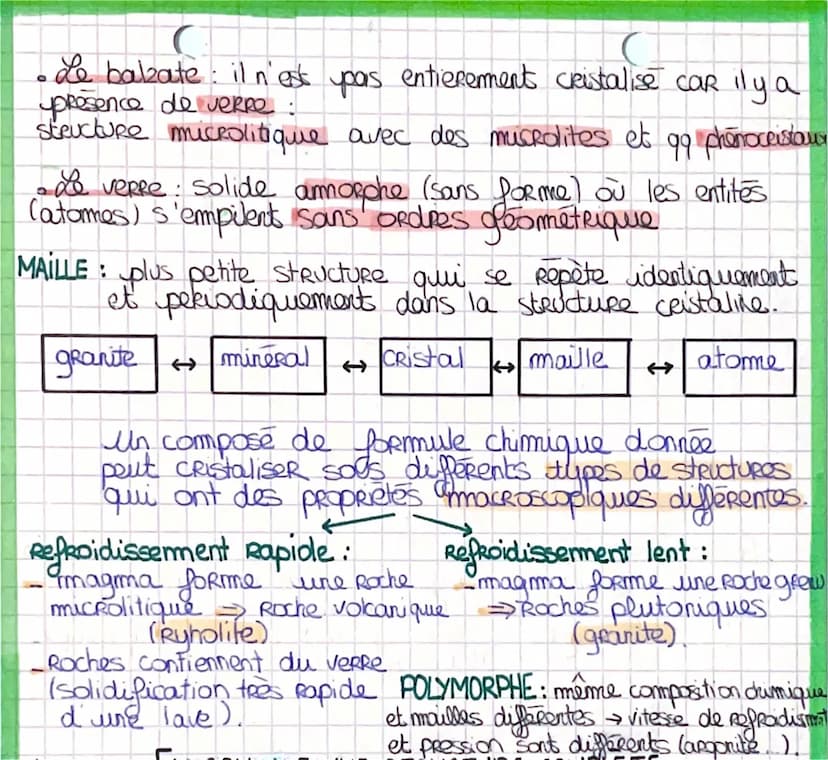 • Le balzate : il n'est pas entierement cristalisé car il y a
présence de verre :
structure microlitique avec des microlites et qq phénocristaux
• Le verre : solide amorphe (sans forme) où les entités
(atomes) s'empilent sans ordres géométrique
MAILLE : plus petite structure qui se répète identiquement
et periodiquement dans la structure cristaline.
granite ↔ minéral ↔ cristal ↔ maille ↔ atome
Un composé de formule chimique donnée
peut cristaliser sous différents types de structures
qui ont des propriétés macroscopiques différentes.
Refroidissement rapide :
- magma forme une roche
microlitique ⇒ Roche volcanique
(Ryholite)
- Roches contiennent du verre
(solidification très rapide
d'une lave).
Refroidissement lent :
- magma forme une roche gren
⇒ Roches plutoniques
(granite).
POLYMORPHE : même composition chimique
et mailles différentes → vitesse de refroidismt
et pression sont différents (argonite...).